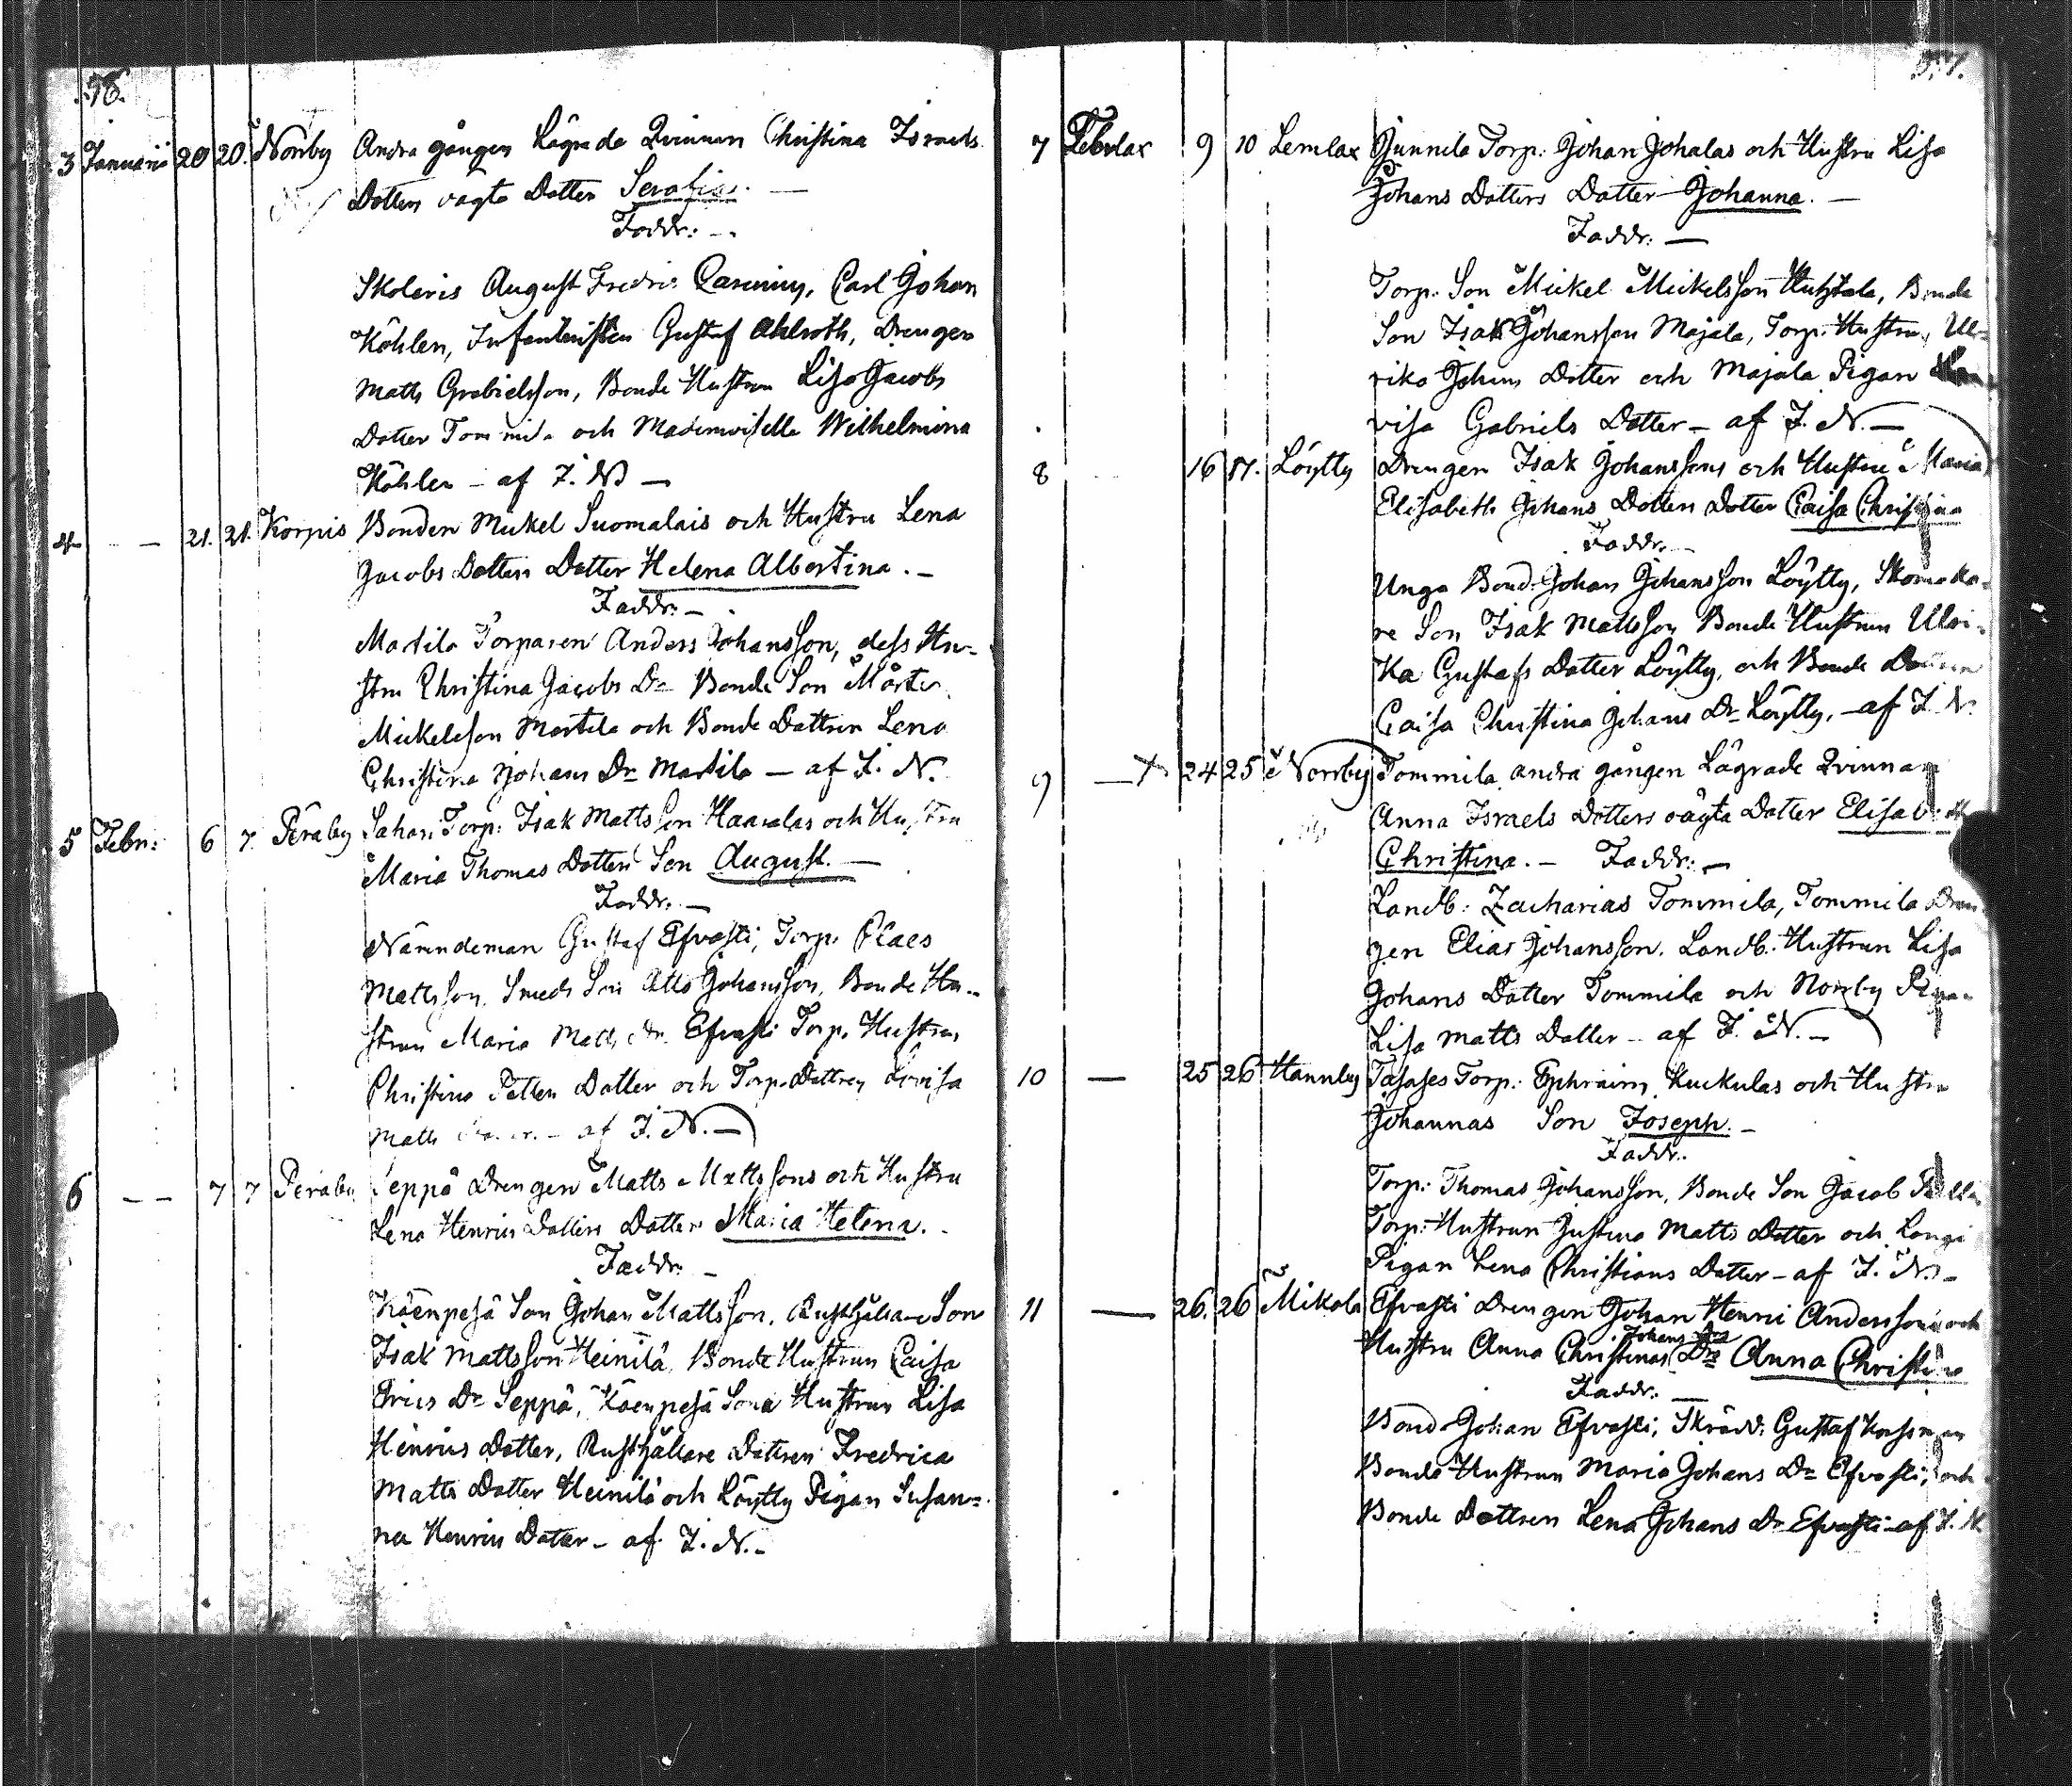 56.
3 Januarii 20 20. Norrby Andra gången Lägrade Qvinnan Christina Israels
Dotters oägta Dotter Serafia. —
Faddr: —
Skoleris August Fredric Carl Johan
Köhler, Infanteristen Gustaf Ahlroth, Drengen
Matts Grabielsson, Bonde Hustrun Lisa Jacobs
Dotter Tommila och Mademoiselle Wilhelmina
Köhler — af J. N —
4 — — 21. 21. Korpis Bonden Mickel Suomalais och Hustru Lena
Jacobs Dotters Dotter Helena Albertina. —
Faddr: —
Martila Torparen Anders Johansson, dess Hu-
stru Christina Jacobs Dr Bonde Son Mårten
Mickelsson Martila och Bonde Dottren Lena
Christina Johans Dr Martila — af J. N.
5 Febr: 6 7. Peraby Sahari Torp: Isak Mattsson Haavalas och Hustru
Maria Thomas Dotters Son August. —
Faddr: —
Nämndeman Gustaf Efvasti, Torp: Claes
Mattsson, Smeds Son Atto Johansson, Bonde Hu-
strun Maria Matts Dr Efvasti Torp. Hustrun
Christina Petters Dotter och Torp. Dottren Lovisa
Matts — af J. N. —
6 — — 7 7 Peraby Seppä Drengen Matts Mattssons och Hustru
Lena Henrics Dotters Dotter Maria Helena. —
Faddr: —
Käenpesä Son Johan Mattsson, Rusthållare Son
Isak Mattsson Heinilä, Bonde Hustrun Caisa
Erics Dr Seppä, Käenpesä Sona Hustrun Lisa
Henrics Dotter, Rusthållare Dottren Fredrica
Matts Dotter Heinilä och Löytty Pigan Susan-
na Henrics Dotter — af J. N. —
57.
7 Februar 9 10 Lemlax Junnila Torp: Johan Johalas och Hustru Lisa
Johans Dotters Dotter Johanna. —
Faddr: —
Torp. Son Mickel Mickelsson Huhtala, Bonde
Son Isak Johansson Majala, Torp. Hustru, Ul-
rika Johans Dotter och Majala Pigan
visa Gabriels Dotter — af J. N. —
8 16 17. Löytty Drengen Isak Johanssons och Hustru Maria
Elisabeth Johans Dotters Dotter Caisa Christina
Faddr. —
Unga Bond. Johan Johansson Löytty, Skomaka-
re Son Isak Mattsson Bonde Hustrun Ulri-
ka Gustafs Dotter Löytty, och Bonde Dottren
Caisa Christina Johans Dr Löytty, — af J. N.
9 — X 24 25 Norrby Tommila andra gången Lägrade Qvinnan
Anna Israels Dotters oägta Dotter Elisabeth
Christina. — Faddr: —
Landb: Zacharias Tommila, Tommila Dren-
gen Elias Johansson, Landb. Hustrun Lisa
Johans Dotter Tommila och Norrby Pigan
Lisa Matts Dotter — af J. N. —
10 — 25 26 Hannby Torp: Ephraim Kuckulas och Hustru
Johannas Son Joseph. —
Faddr.
Torp: Thomas Johansson, Bonde Son Jacob
Torp: Hustrun Justina Matts Dotter och Longi
Pigan Lena Christians Dotter — af J. N. —
11 — 26. 26 Mikola Efvasti Drengen Johan Henric Anderssons och
Hustru Anna Christinas Johans Dra Dr Anna Christina
Faddr: —
Bond Johan Efvasti, Skrädd: Gustaf
Bonde Hustrun Maria Johans Dr Efvasti, och
Bonde Dottren Lena Johans Dr Efvasti — af J. N